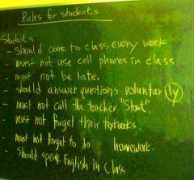 Rules for students
Students
- should come to class every week
- must not use cell phones in class
- must not be late.
- should answer questions voluntarily
- must not call the teacher "Stout"
- must not forget their textbooks
- must not forget to do homework
- should speak English in Class